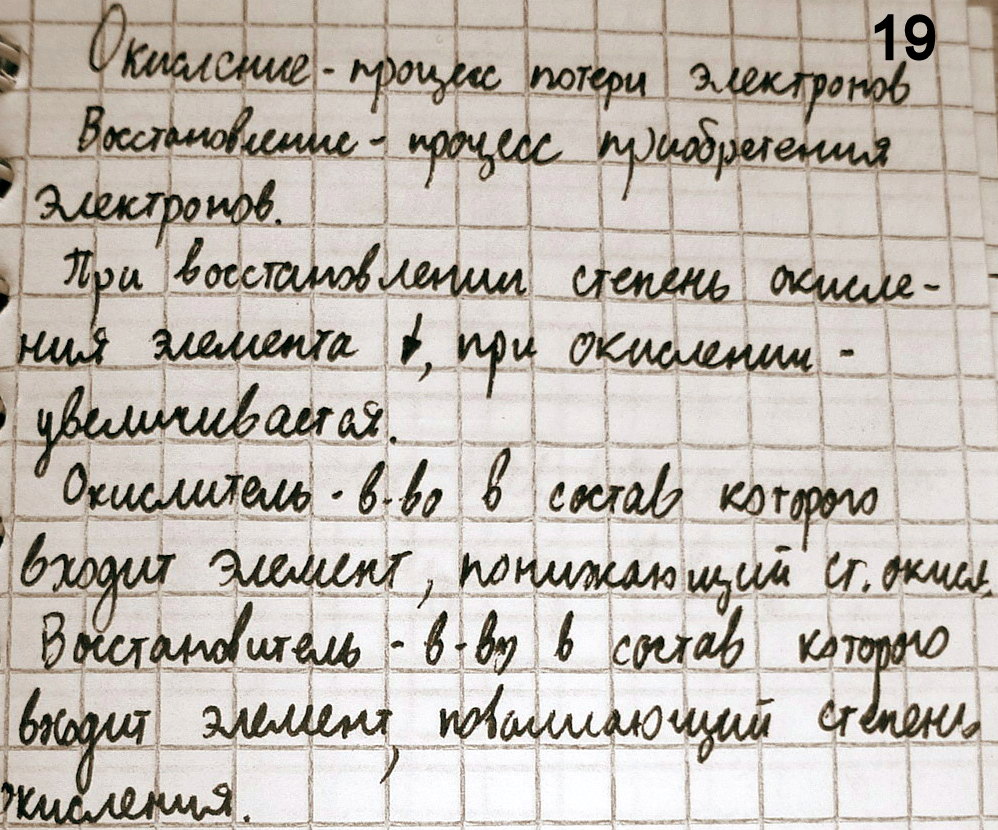 19
Окисление - процесс потери электронов
Восстановление - процесс приобретения
электронов.
При восстановлении степень окисле-
ния элемента ↓, при окислении -
увеличивается.
Окислитель - в-во в состав которого
входит элемент, понижающий ст. окисл.
Восстановитель - в-во в состав которого
входит элемент, повышающий степень
окисления.